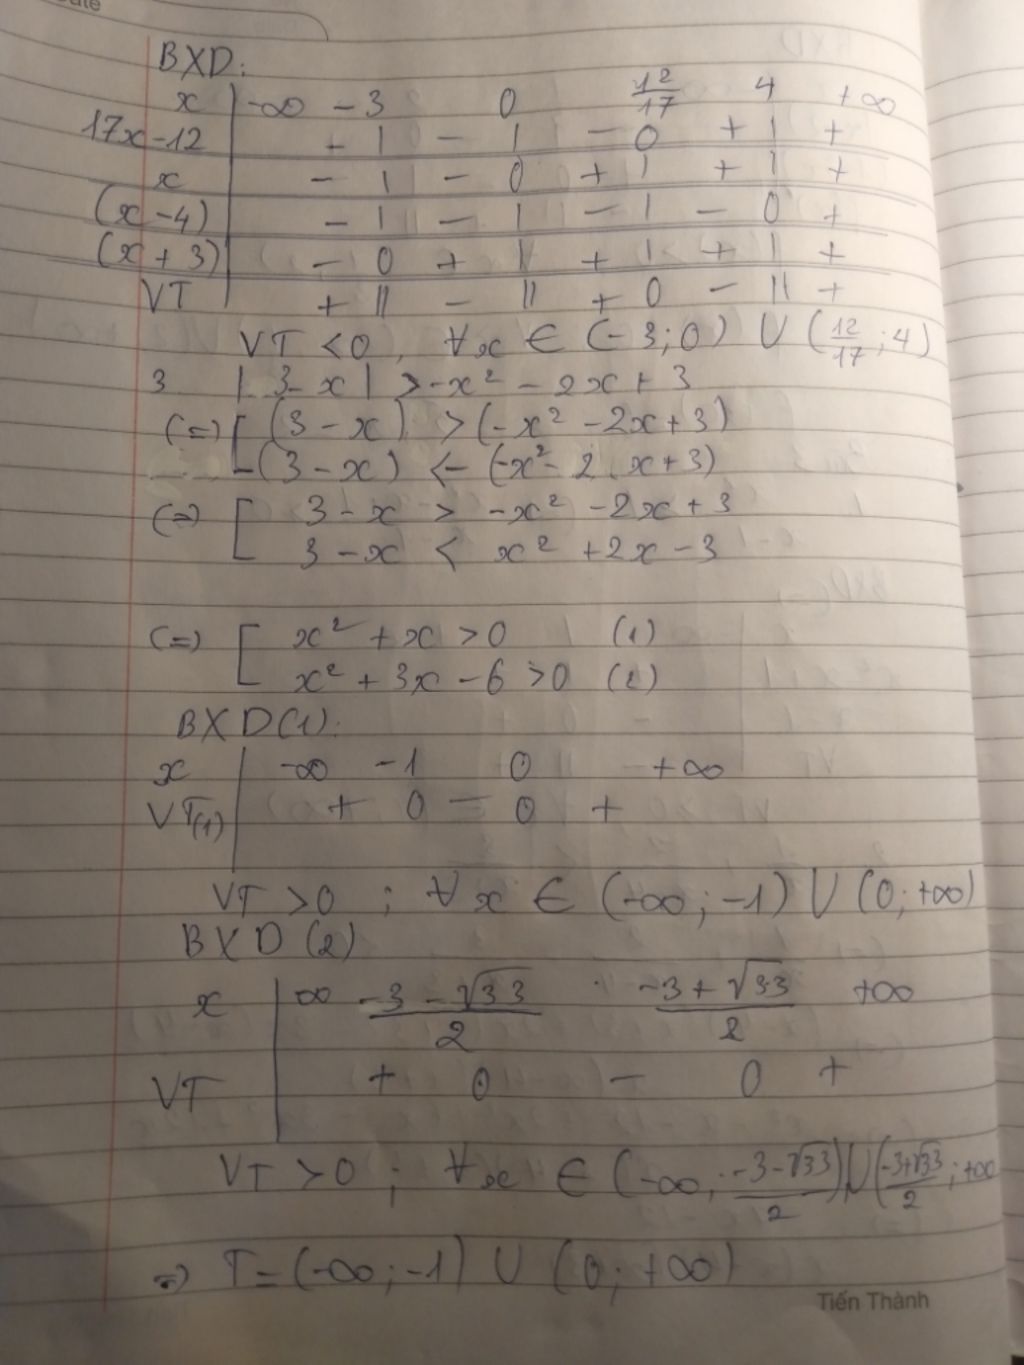 BXD:
x -∞ -3 0 12/17 4 +∞
17x-12 - | - | - 0 + | +
x - | - 0 + | + | +
(x-4) - | - | - | - 0 +
(x+3) - 0 + | + | + | +
VT + || - || + 0 - || +
VT < 0, ∀x ∈ (-3;0) ∪ (12/17;4)
3 |3-x| > -x² - 2x + 3
(=) [ (3-x) > (-x² -2x+3)
(3-x) < -(-x² - 2x+3)
(=) [ 3-x > -x² -2x+3
3-x < x² +2x-3
(=) [ x² + x > 0 (1)
x² + 3x - 6 > 0 (2)
BXD(1):
x -∞ -1 0 +∞
VT(1) + 0 - 0 +
VT > 0 ; ∀x ∈ (-∞;-1) ∪ (0;+∞)
BXD (2)
x ∞ (-3-√33)/2 (-3+√33)/2 +∞
VT + 0 - 0 +
VT > 0 ; ∀x ∈ (-∞; (-3-√33)/2) ∪ ((-3+√33)/2 ; +∞
=) T = (-∞;-1) ∪ (0;+∞)
Tiến Thành